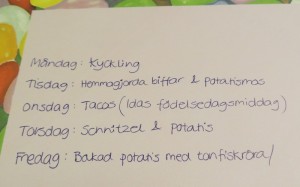 Måndag: Kyckling
Tisdag: Hemmagjorda biffar & potatismos
Onsdag: Tacos (Idas födelsedagsmiddag)
Torsdag: Schnitzel & potatis
Fredag: Bakad potatis med tonfiskröra/